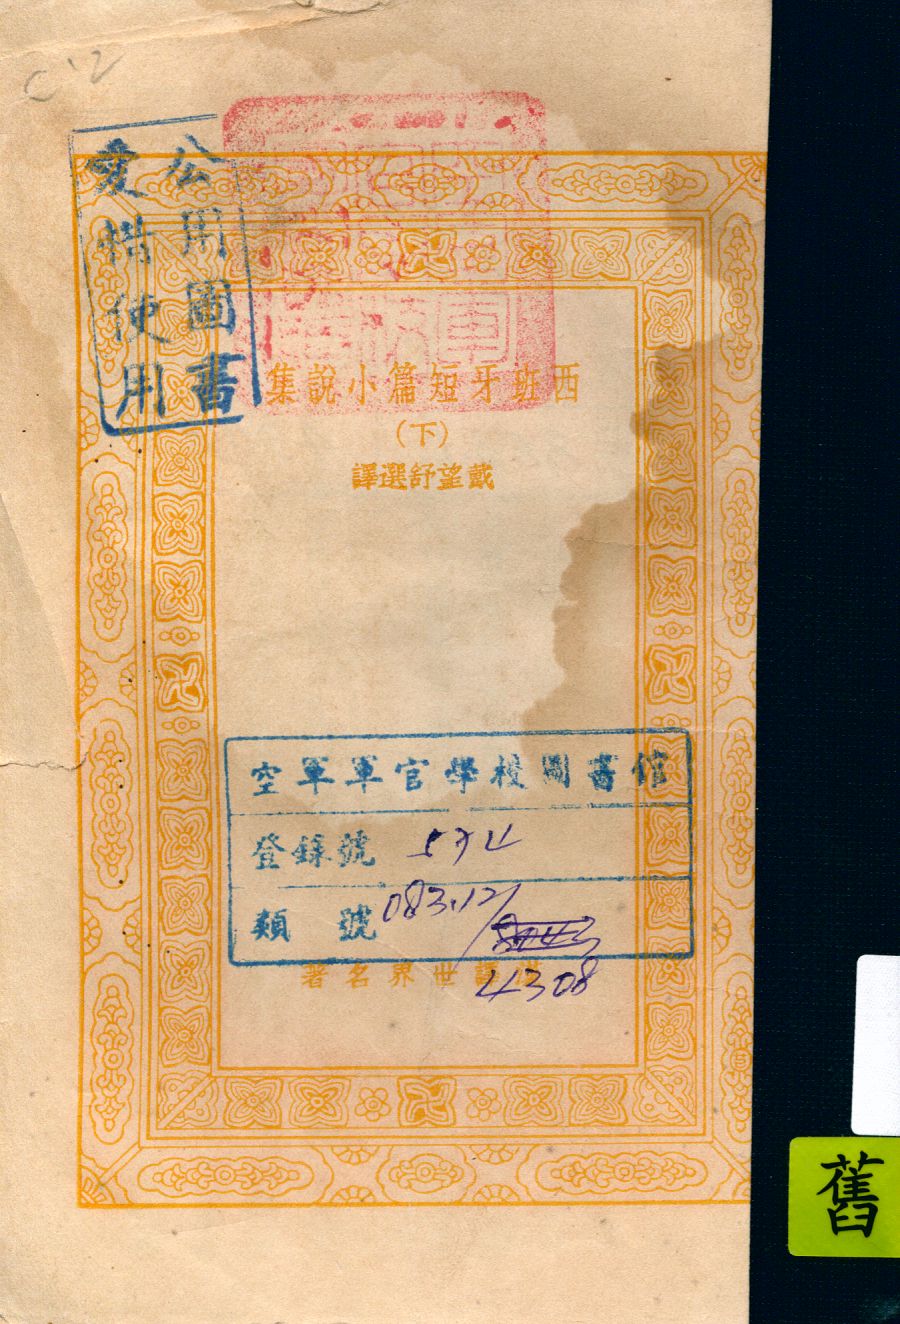 C'2
公用圖書
愛惜使用
西班牙短篇小說集
(下)
戴望舒選譯
空軍軍官學校圖書館
登錄號 574
類號 083.121
4308
世界名著
舊